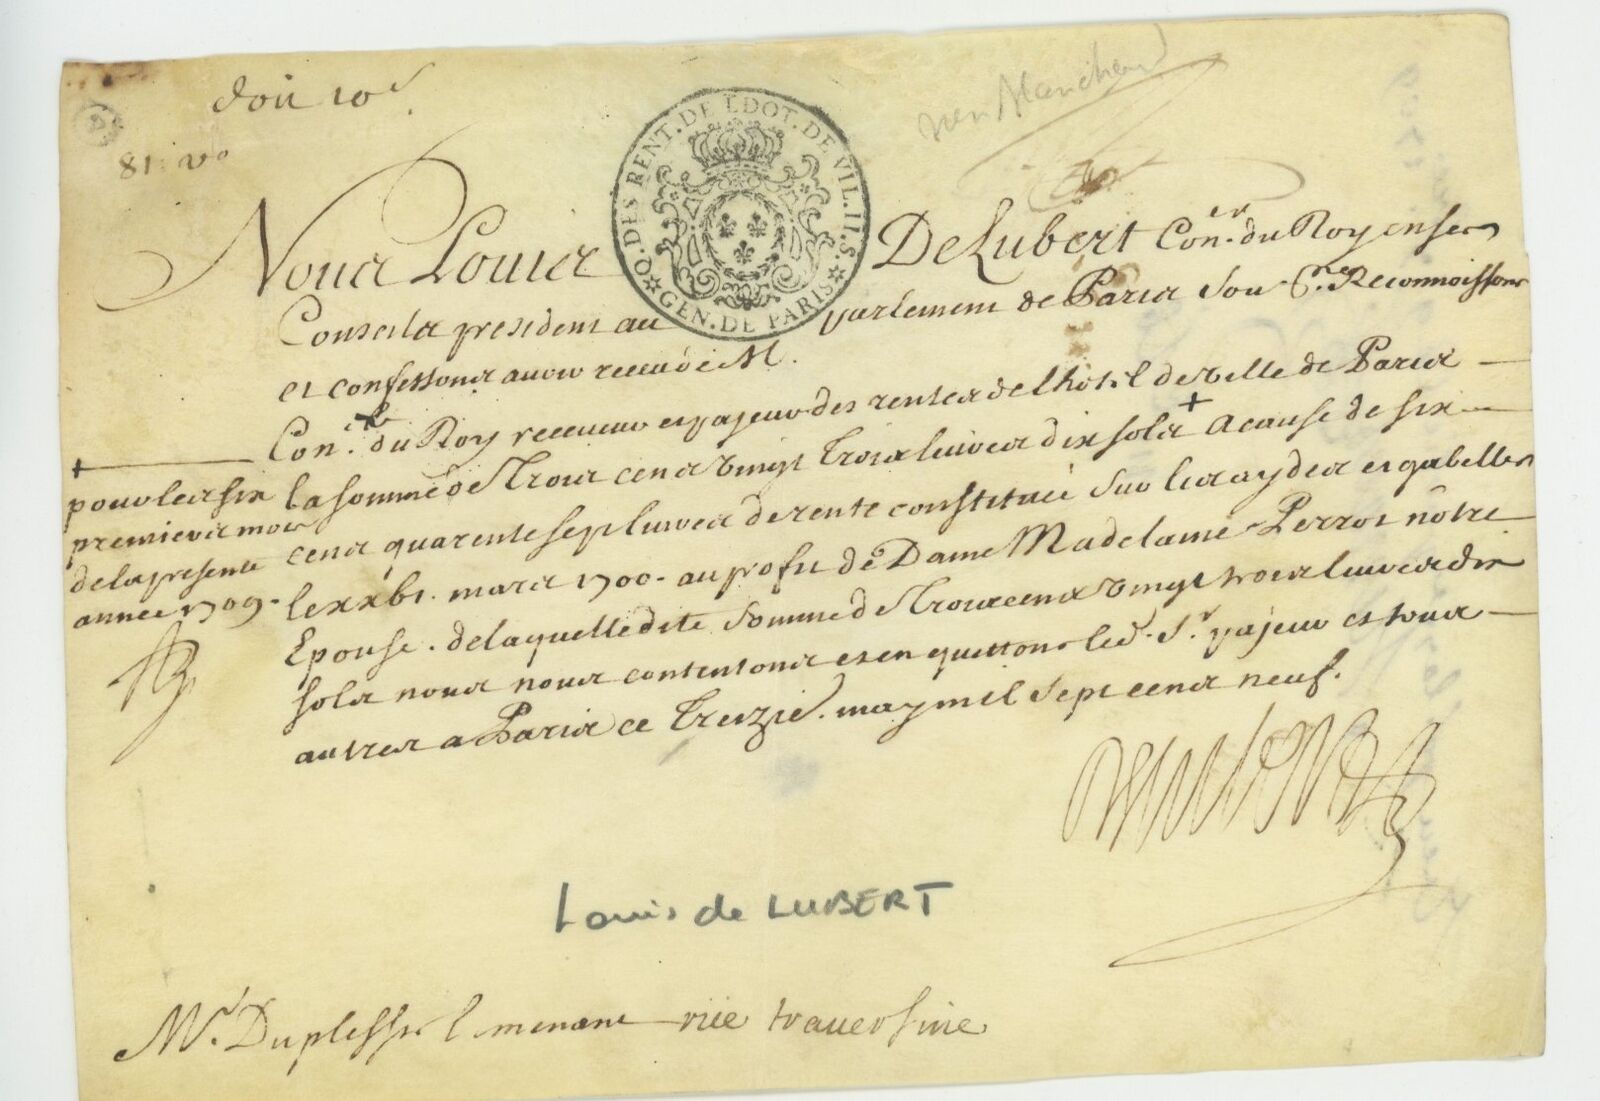 doit 10d
81 vo
Q. DES RENT. DE L'DOT. DE VIL. II. S. GEN. DE PARIS
Nous Louis De Lubert Con.er du Roy en ses
Conseils president au parlement de Paris Sou. Reconnoissons
et confessons avoir receu de M.
Con.er du Roy receveur et payeur des rentes de l'hotel de ville de Paris
la somme de Trois cens vingt Trois livres dix sols + a cause de six
cens quarente sept livres de rente constituée sur les aydes et gabelles
le xxbi. mars 1700. au profit de Dame Madelaine Perrot nôtre
Epouse. de laquelle dite Somme de Trois cens vingt trois livres dix
sols nous nous contentons et en quittons led. Sr. payeur et tous
autres a Paris ce Treizie. may mil sept cens neuf.
+ pour les six
premiers mois
de la presente
année 1709.
Louis de LUBERT
Mr. Duplessis rüe traversine